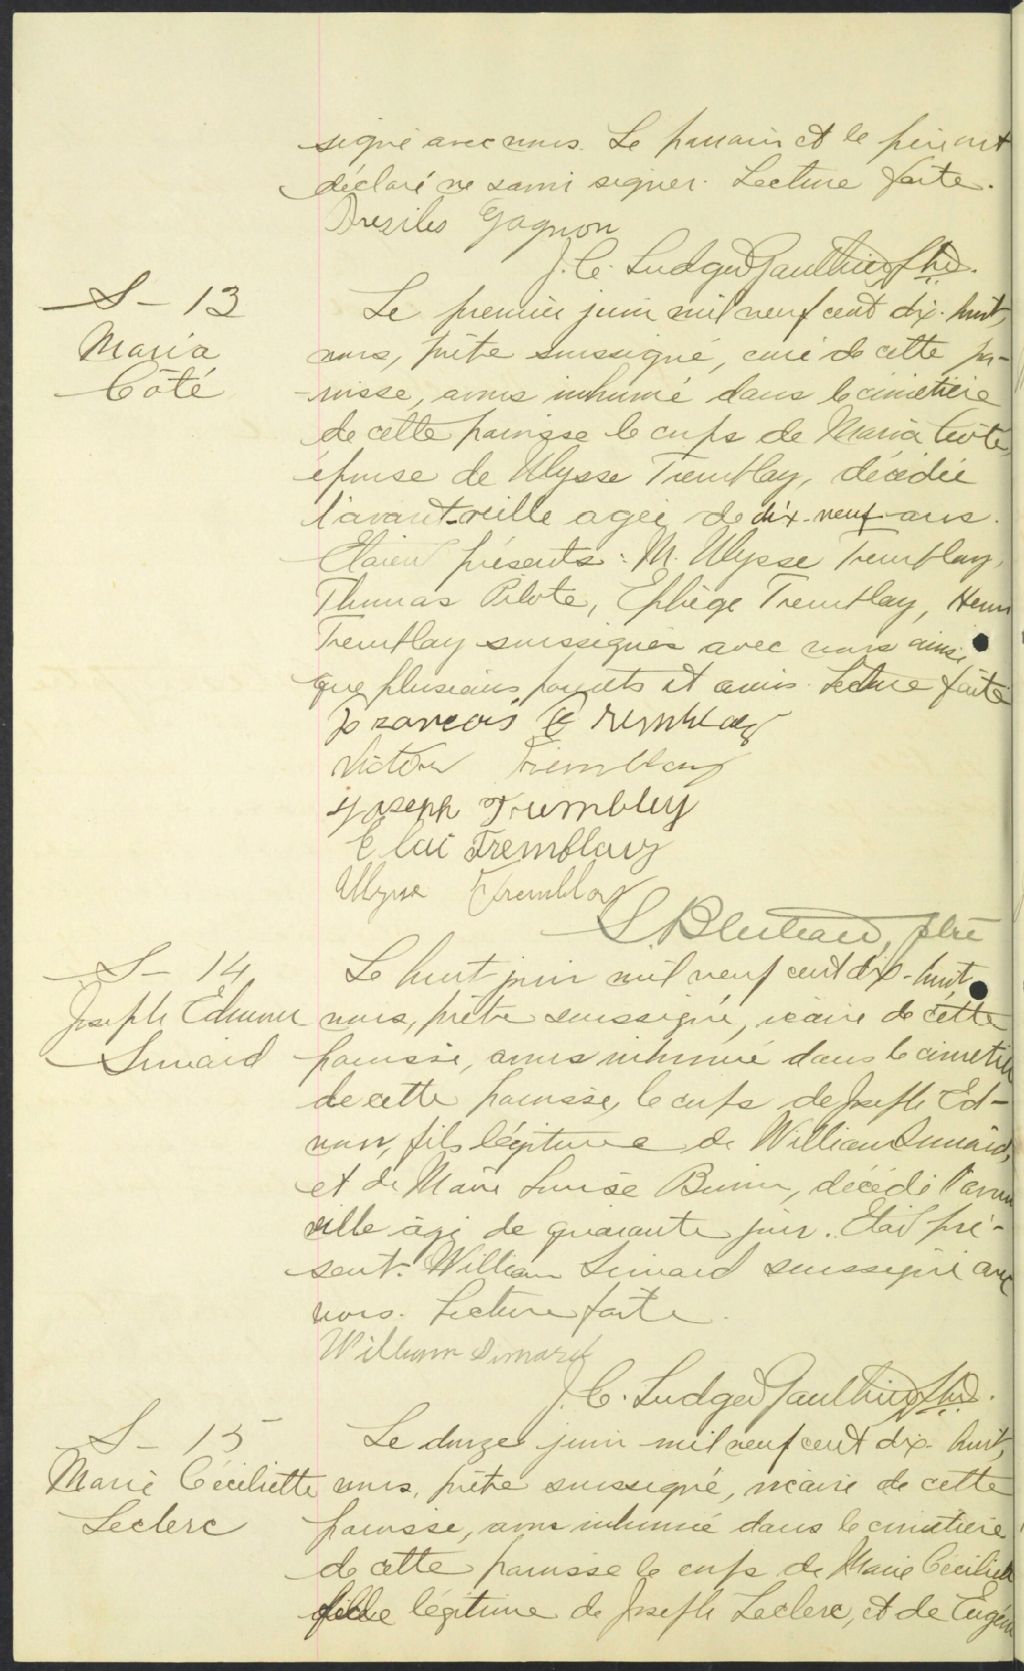 signé avec nous. Le parrain et le père ont
déclaré ne savoir signer. Lecture faite.
Gagnon
J. C. Ludger Gauthier Ptre.
S - 13
Maria
Côté
Le premier juin mil neuf cent dix-huit,
nous, prêtre soussigné, curé de cette pa-
roisse, avons inhumé dans le cimetière
de cette paroisse le corps de Maria Côté
épouse de Ulysse Tremblay, décédée
l'avant-veille agée de dix-neuf ans.
Etaient présents: M. Ulysse Tremblay,
Thomas Pilote, Ephège Tremblay, Henri
Tremblay soussignés avec nous ainsi
que plusieurs parents et amis. Lecture faite
Francois Tremblay
Victor Tremblay
Joseph Trumbley
Eloi Tremblay
Ulysse Tremblay
L. Bluteau, ptre
S - 14
Joseph Edmour
Simard
Le huit juin mil neuf cent dix-huit
nous, prêtre soussigné, vicaire de cette
paroisse, avons inhumé dans le cimetière
de cette paroisse, le corps de Joseph Ed-
mour, fils légitime de William Simard,
et de Marie Louise, décédé l'avant
veille âgé de quarante jours. Etait pré-
sent. William Simard soussigné avec
nous. Lecture faite.
William Simard
J. C. Ludger Gauthier Ptre.
S - 15
Marie Céciliette
Leclerc
Le douze juin mil neuf cent dix-huit,
nous, prêtre soussigné, vicaire de cette
paroisse, avons inhumé dans le cimetière
de cette paroisse le corps de Marie Céciliette
fille légitime de Joseph Leclerc, et de Eugénie